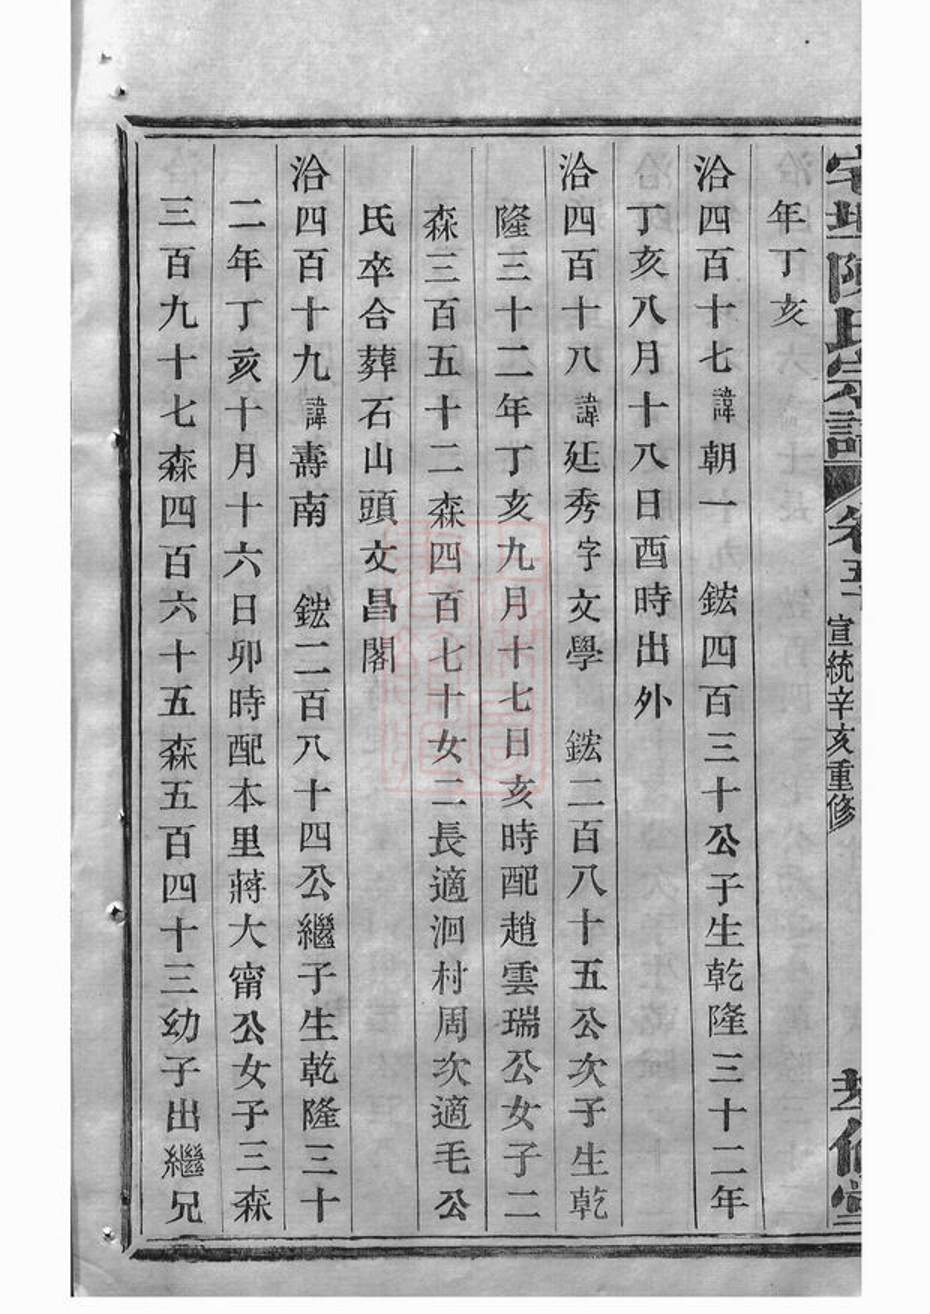 宅坦陳氏宗譜 卷五 宣統辛亥重修
年丁亥
洽四百十七諱朝一 鋐四百三十公子生乾隆三十二年
丁亥八月十八日酉時出外
洽四百十八諱廷秀字文學 鋐二百八十五公次子生乾
隆三十二年丁亥九月十七日亥時配趙雲瑞公女子二
森三百五十二森四百七十女二長適洄村周次適毛公
氏卒合葬石山頭文昌閣
洽四百十九諱壽南 鋐二百八十四公繼子生乾隆三十
二年丁亥十月十六日卯時配本里蔣大甯公女子三森
三百九十七森四百六十五森五百四十三幼子出繼兄